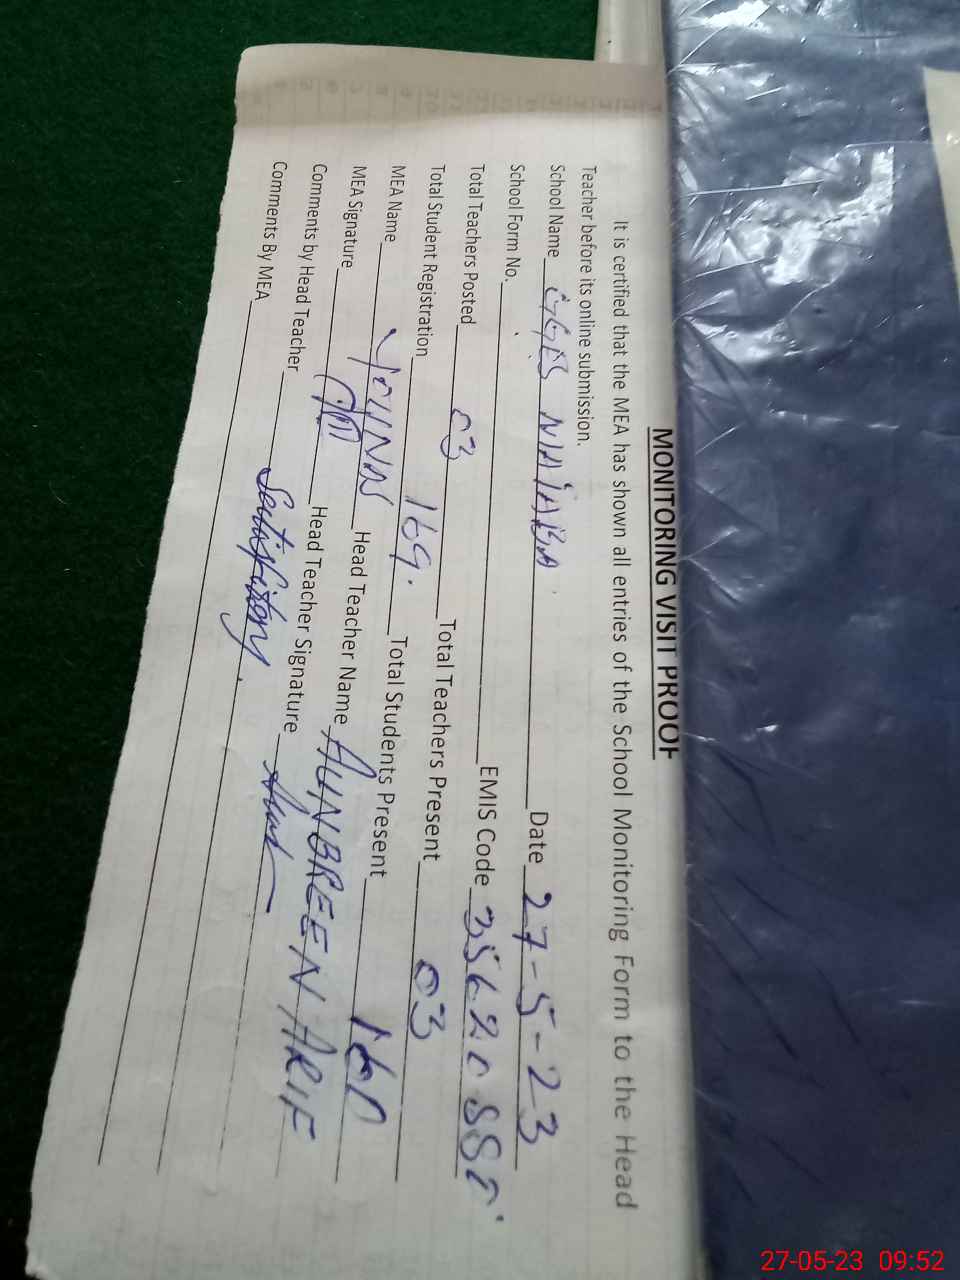 MONITORING VISIT PROOF
It is certified that the MEA has shown all entries of the School Monitoring Form to the Head
Teacher before its online submission.
School Name GGES Date 27-5-23
School Form No. EMIS Code
Total Teachers Posted 03 Total Teachers Present 03
Total Student Registration 169. Total Students Present 160
MEA Name Head Teacher Name AUNBREEN ARIF
MEA Signature Head Teacher Signature
Comments by Head Teacher
Comments By MEA
27-05-23 09:52